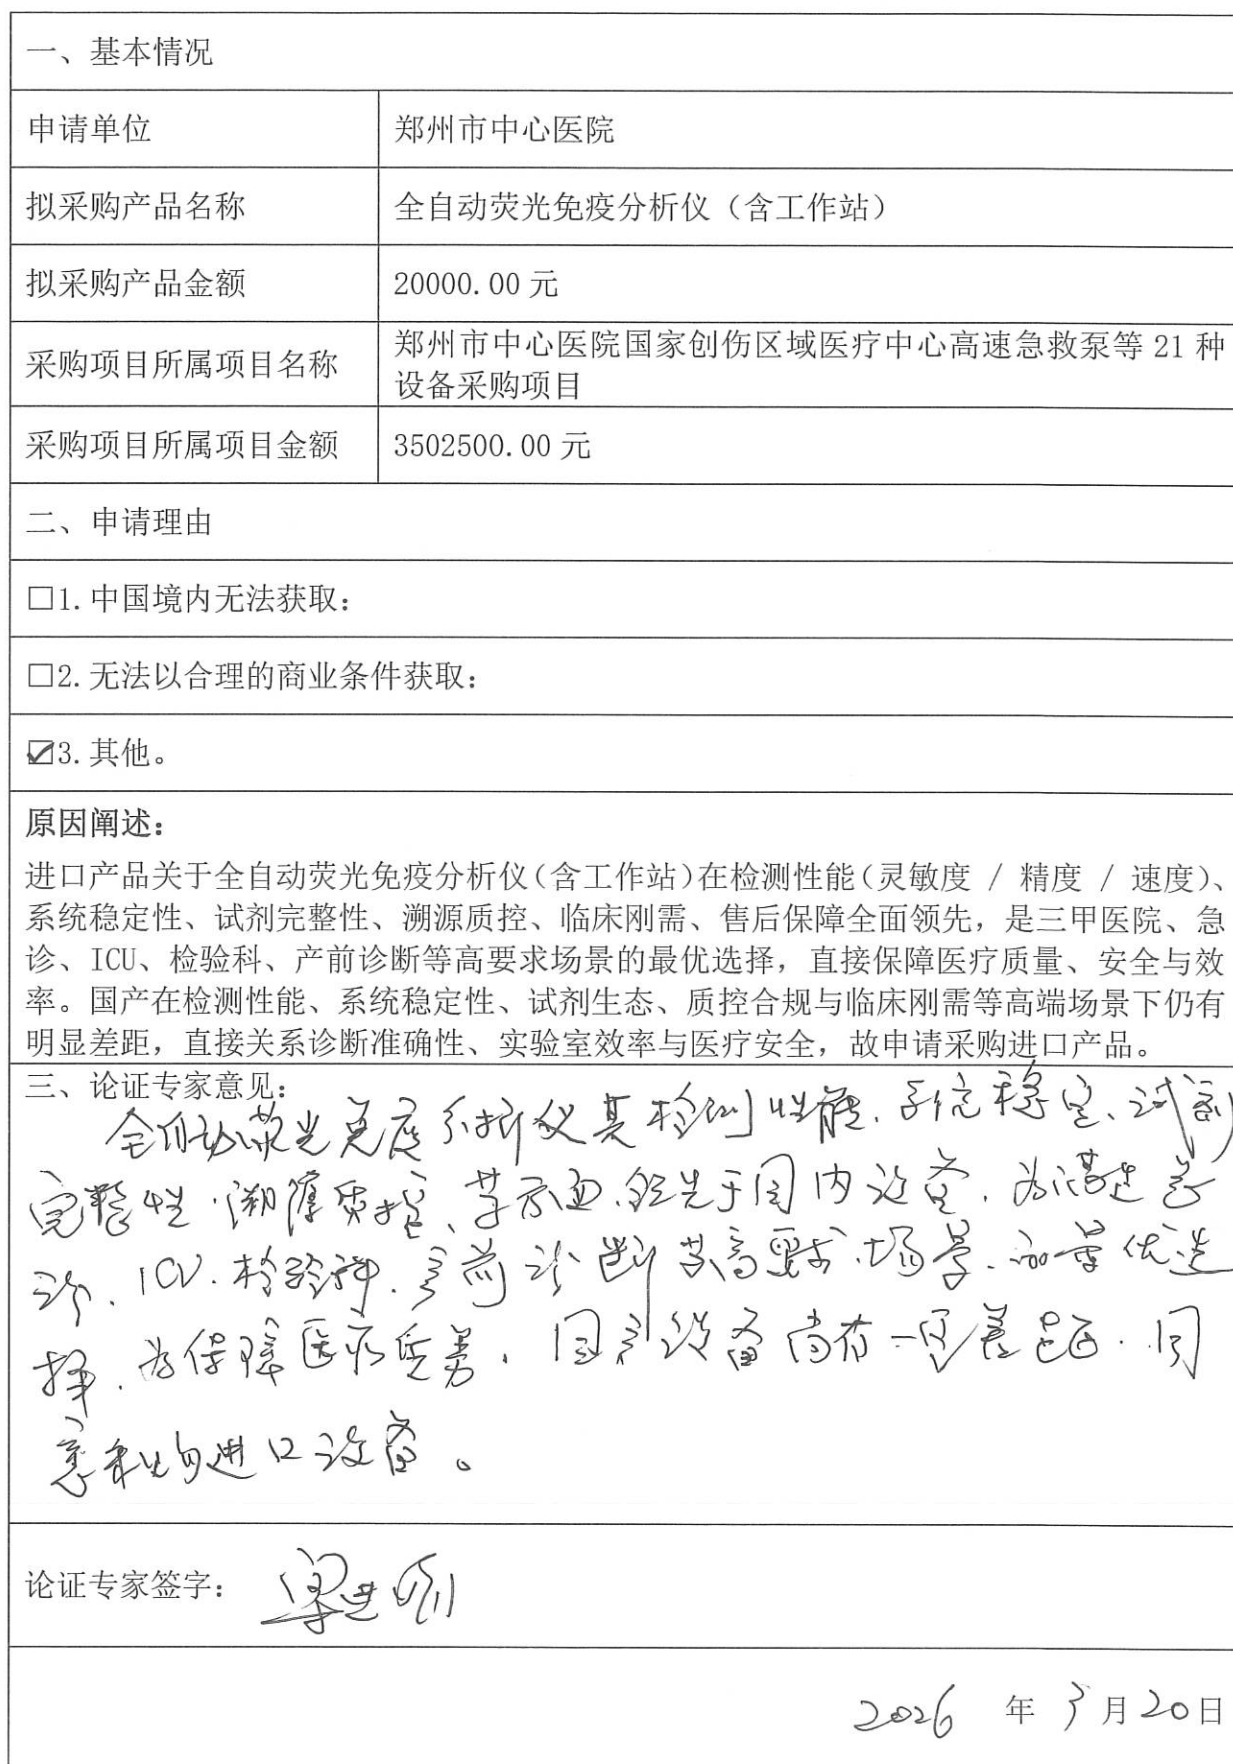 一、基本情况
申请单位
郑州市中心医院
拟采购产品名称
全自动荧光免疫分析仪（含工作站）
拟采购产品金额
20000.00 元
采购项目所属项目名称
郑州市中心医院国家创伤区域医疗中心高速急救泵等 21 种
设备采购项目
采购项目所属项目金额
3502500.00 元
二、申请理由
□1.中国境内无法获取：
□2.无法以合理的商业条件获取：
☑3.其他。
原因阐述：
进口产品关于全自动荧光免疫分析仪(含工作站)在检测性能(灵敏度 / 精度 / 速度)、
系统稳定性、试剂完整性、溯源质控、临床刚需、售后保障全面领先，是三甲医院、急
诊、ICU、检验科、产前诊断等高要求场景的最优选择，直接保障医疗质量、安全与效
率。国产在检测性能、系统稳定性、试剂生态、质控合规与临床刚需等高端场景下仍有
明显差距，直接关系诊断准确性、实验室效率与医疗安全，故申请采购进口产品。
三、论证专家意见：
全自动荧光免疫分析仪其检测性能、系统稳定、试剂
完整性、溯源质控、等方面领先于国内设备、为满足急
诊、ICU、检验科、产前诊断等高要求场景、最优选
择、为保障医疗质量、国产设备尚有一定差距、同
意采购进口设备。
论证专家签字：
2026 年 3 月 20 日